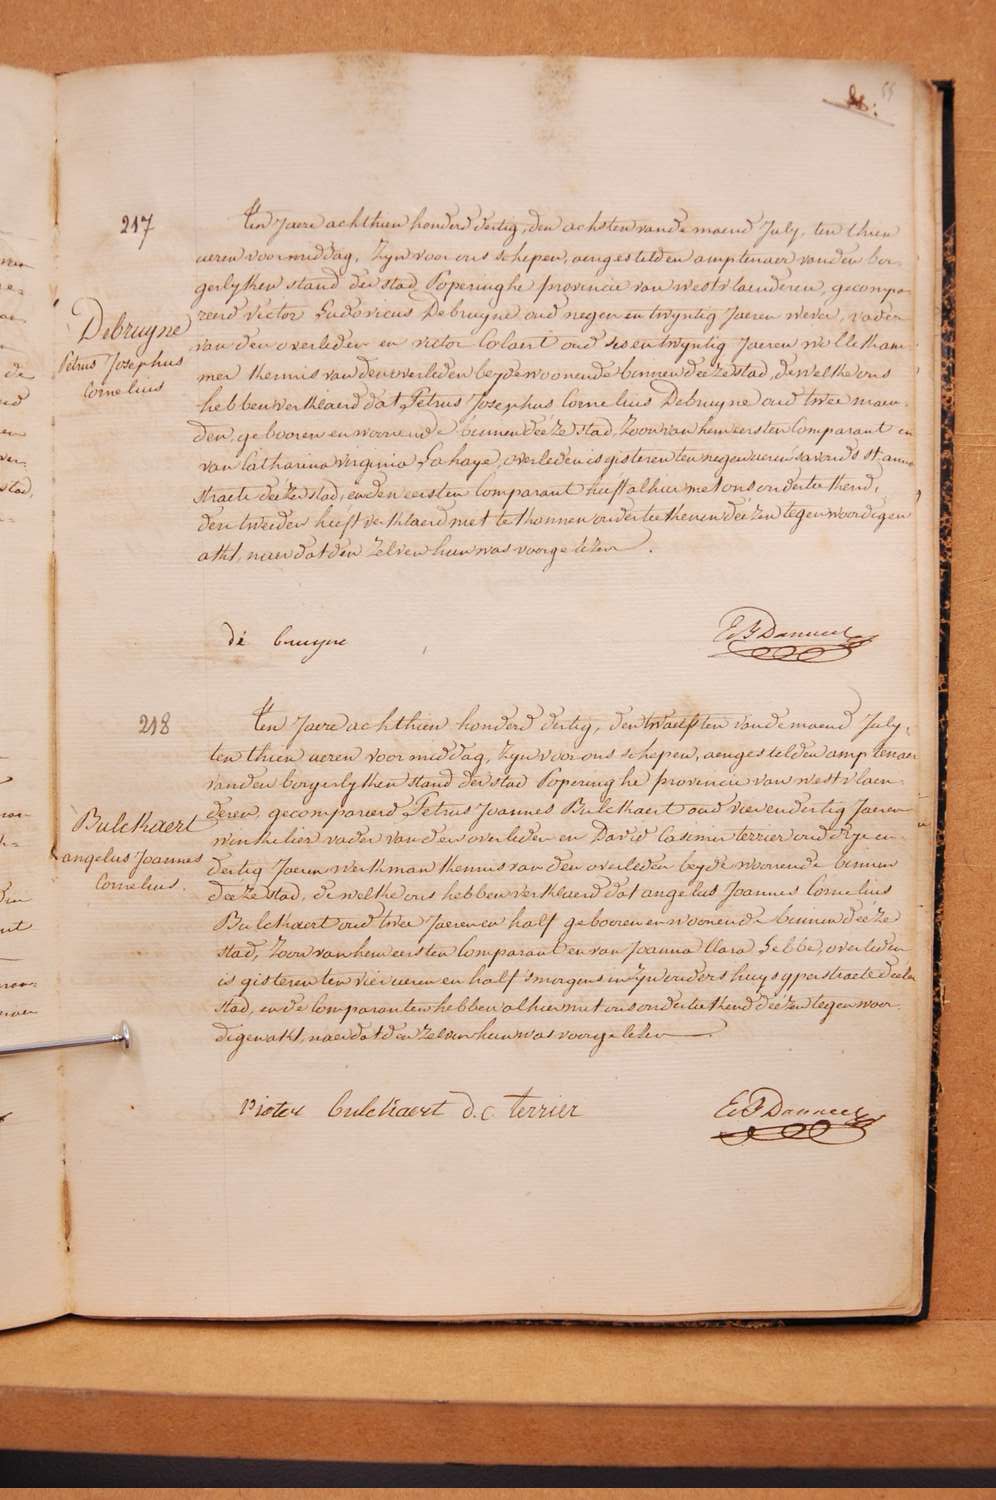 55
217
Debruyne
Petrus Josephus
Cornelius
Ten Jaere achthien honderd dertig, den achsten van de maend July, ten thien
ueren voormiddag, Zyn voor ons schepen, aengestelden amptenaer van den bor-
gerlyken stand der stad Poperinghe provincie van westvlaenderen, gecompa-
reerd Victor Ludovicus Debruyne oud negen en twyntig Jaeren wever, vader
van den overleden en victor Colaert oud ses en twyntig Jaeren wollekam-
mer kennis van den overleden beyde woonende binnen deéze stad, dewelke ons
hebben verklaerd dat Petrus Josephus Cornelius Debruyne oud twee maen-
den, gebooren en woonende binnen deéze stad, Zoon van hem eersten Comparant en
van Catharina virginia Lahaye, overleden is gisteren ten negen ueren savonds st anna
straete deéze stad, en den eersten Comparant heeft alhier met ons onderteekend,
den tweeden heeft verklaerd niet te konnen onderteekenen deézen tegenwoordigen
akt, naer dat den Zelven hun was voorgelezen.
de bruyne
E F Danneel
218
Bulckaert
angelus Joannes
Cornelius.
Ten Jaere achthien honderd dertig, den twaelfsten van de maend July,
ten thien ueren voormiddag, Zyn voor ons schepen, aengestelden amptenaer
van den borgerlyken stand der stad Poperinghe provincie van westvlaen-
deren, gecompareerd Petrus Joannes Bulckaert oud vier en dertig Jaeren
winkelier vader van den overleden en David Casimir terrier oud dry en
dertig Jaeren werkman kennis van den overleden beyde woonende binnen
deéze stad, dewelke ons hebben verklaerd dat angelus Joannes Cornelius
Bulckaert oud twee Jaeren en half gebooren en woonende binnen deéze
stad, Zoon van hem eersten Comparant en van Joanna Clara Lebbe, overleden
is gisteren ten vier ueren en half smorgens in Zyn ouders huys yperstraete deéze
stad, en de Comparanten hebben alhier met ons onderteekend deézen tegenwoor-
digen akt, naer dat den Zelven hun was voorgelezen.
Pieter bulckaert D.C terrier
E F Danneel